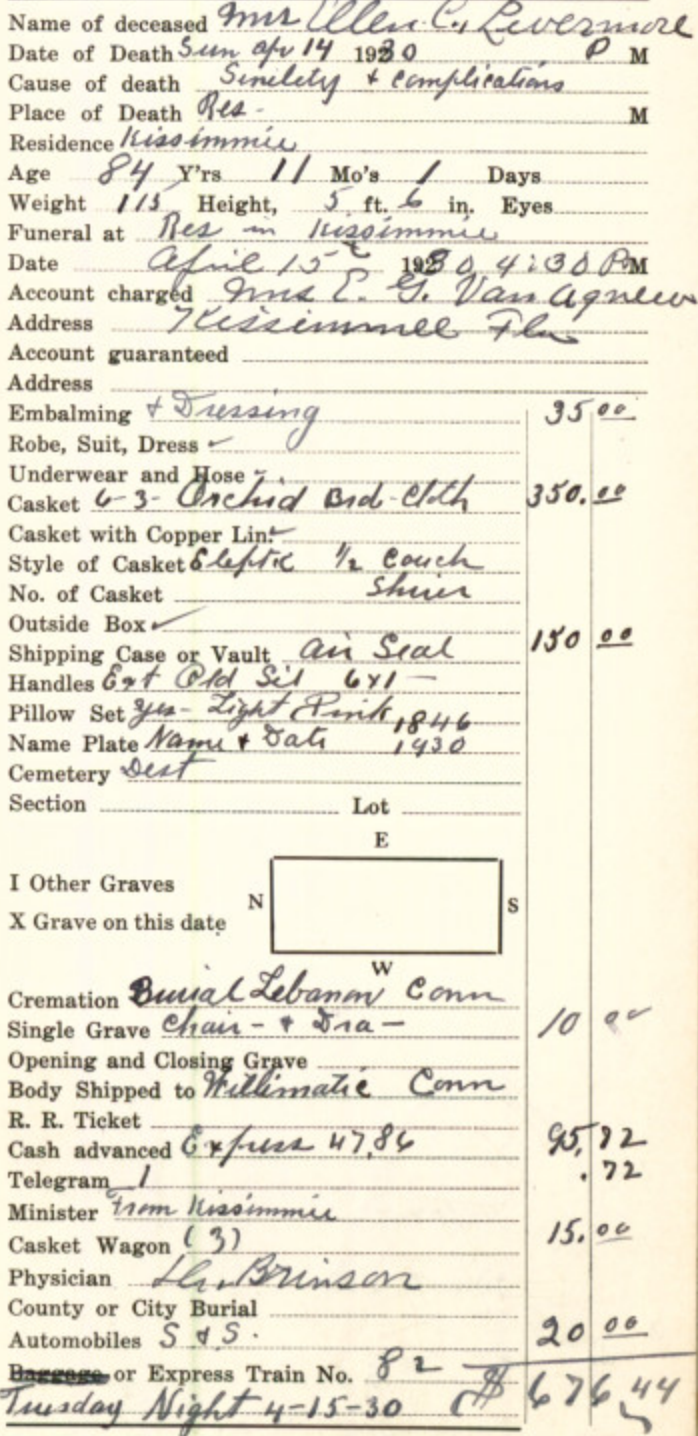 Name of deceased Mrs Ellen C. Livermore
Date of Death Sun Apr 14 1930 P M
Cause of death Sinelety + complications
Place of Death Res - M
Residence Kissimmie
Age 84 Y'rs 11 Mo's 1 Days
Weight 115 Height, 5 ft. 6 in. Eyes
Funeral at Res in Kissimmie
Date April 15 1930 4:30 P M
Account charged Mrs E. G. Van Agnew
Address Kissimmee Fla
Account guaranteed
Address
Embalming + Dressing 35 00
Robe, Suit, Dress ✓
Underwear and Hose ✓
Casket 6-3- Orchid Brd-Cloth 350.00
Casket with Copper Lin. ✓
Style of Casket Eleptic 1/2 Couch
No. of Casket Shirr
Outside Box ✓
Shipping Case or Vault Air Seal 150 00
Handles Ext Old Sil 6x1 -
Pillow Set yes - Light Pink 1846
Name Plate Name + Date 1930
Cemetery Dest
Section Lot
E
I Other Graves
N S
X Grave on this date
W
Cremation Burial Lebanon Conn
Single Grave Chair - + Dra - 10 00
Opening and Closing Grave
Body Shipped to Willimatic Conn
R. R. Ticket
Cash advanced Express 47.86 95.72
Telegram 1 .72
Minister From Kissimmie
Casket Wagon (3) 15.00
Physician Dr. Brinson
County or City Burial
Automobiles S & S. 20 00
Baggage or Express Train No. 82
Tuesday Night 4-15-30 $676.44